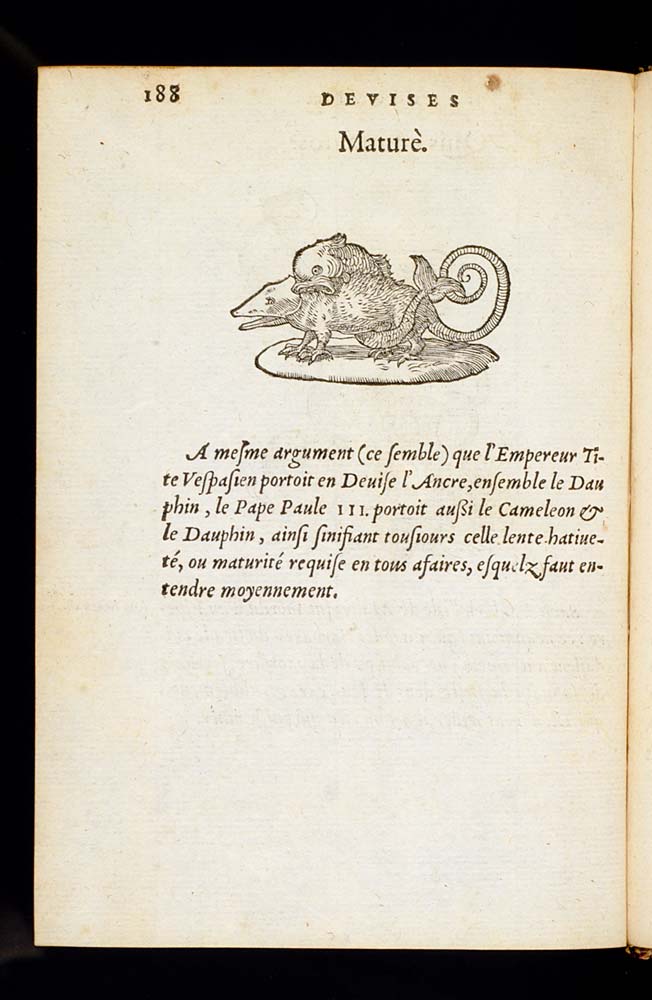 188
DEVISES
Maturè.
A meſme argument (ce ſemble) que l'Empereur Ti-
te Veſpaſien portoit en Deuiſe l'Ancre, enſemble le Dau
phin, le Pape Paule III. portoit außi le Cameleon &
le Dauphin, ainſi ſinifiant touſiours celle lente hatiue-
té, ou maturité requiſe en tous afaires, eſquelz faut en-
tendre moyennement.